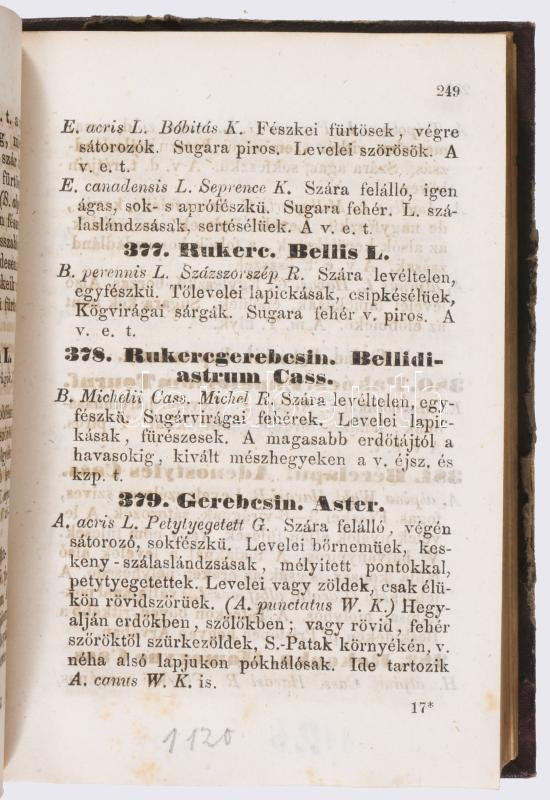 249
E. acris L. Bóbitás K. Fészkei fürtösek, végre
sátorozók. Sugara piros. Levelei szőrösök. A
v. e. t.
E. canadensis L. Seprence K. Szára felálló, igen
ágas, sok- s aprófészkü. Sugara fehér. L. szá-
laslándzsásak, sertésélüek. A v. e. t.
377. Rukerc. Bellis L.
B. perennis L. Százszorszép R. Szára levéltelen,
egyfészkü. Tőlevelei lapickásak, csipkésélüek,
Kögvirágai sárgák. Sugara fehér v. piros. A
v. e. t.
378. Rukercgerebcsin. Bellidi-
astrum Cass.
B. Michelii Cass. Michel R. Szára levéltelen, egy-
fészkü. Sugárvirágai fehérek. Levelei lapic-
kásak, fürészesek. A magasabb erdőtájtol a
havasokig, kivált mészhegyeken a v. éjsz. és
kzp. t.
379. Gerebcsin. Aster.
A. acris L. Petytyegetett G. Szára felálló, végén
sátorozó, sokfészkü. Levelei bőrnemüek, kes-
keny-szálaslándzsásak, mélyitett pontokkal,
petytyegetettek. Levelei vagy zöldek, csak élü-
kön rövidszőrüek. (A. punctatus W. K.) Hegy-
alján erdőkben, szőlőkben; vagy rövid, fehér
szőröktől szürkezöldek, S.-Patak környékén, v.
néha alsó lapjukon pókhálósak. Ide tartozik
A. canus W. K. is.
17*
1120